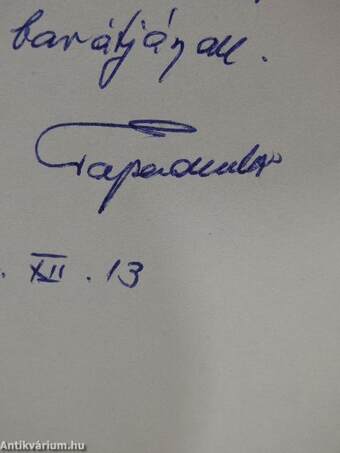 barátjának.
. XII. 13
Antikvárium.hu